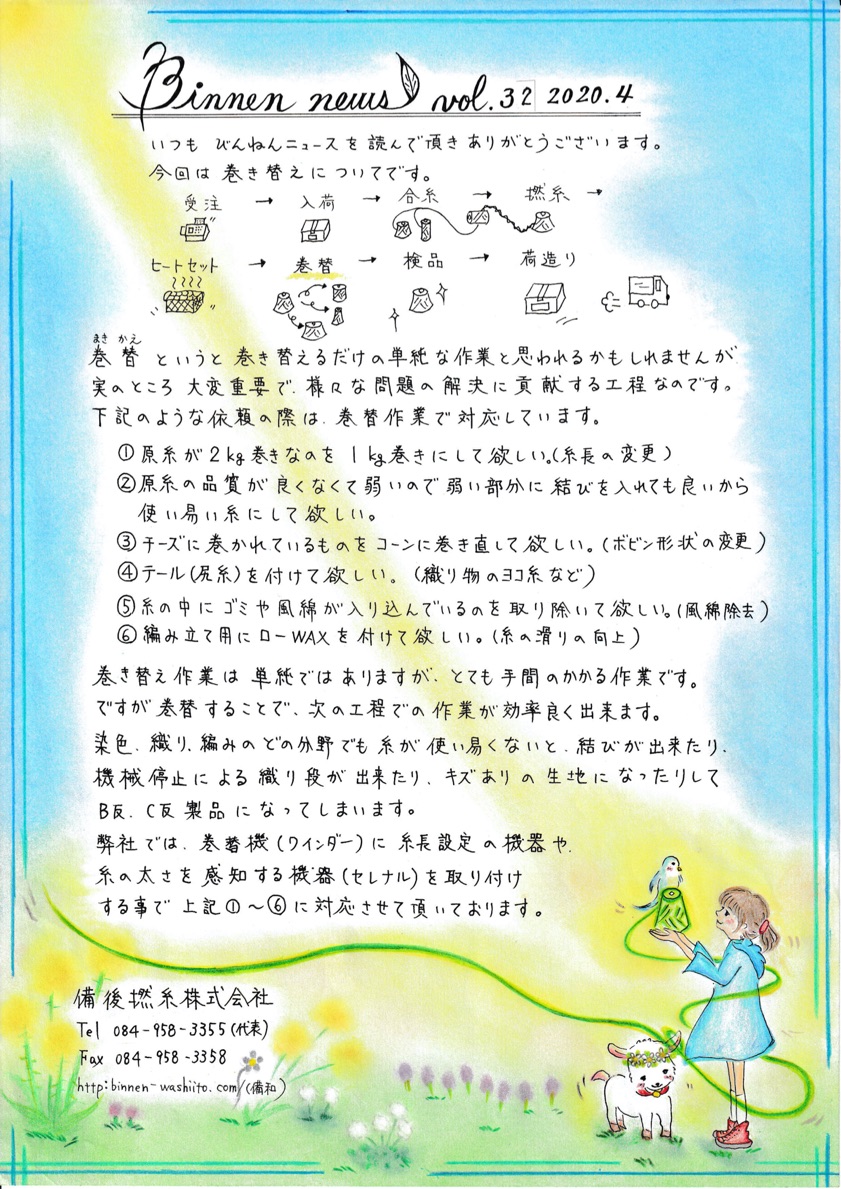 Binnen news vol.32 2020.4
いつも びんねんニュースを読んで頂きありがとうございます。
今回は 巻き替えについてです。
受注 → 入荷 → 合糸 → 撚糸 →
ヒートセット → 巻替 → 検品 → 荷造り
まき かえ
巻替 というと 巻き替えるだけの単純な作業と思われるかもしれませんが、
実のところ 大変重要で、様々な問題の解決に貢献する工程なのです。
下記のような依頼の際は、巻替作業で対応しています。
①原糸が2kg巻きなのを 1kg巻きにして欲しい。(糸長の変更)
②原糸の品質が良くなくて弱いので弱い部分に結びを入れても良いから
使い易い糸にして欲しい。
③チーズに巻かれているものをコーンに巻き直して欲しい。(ボビン形状の変更)
④テール(尻糸)を付けて欲しい。(織り物のヨコ糸など)
⑤糸の中にゴミや風綿が入り込んでいるのを取り除いて欲しい。(風綿除去)
⑥編み立て用にローWAXを付けて欲しい。(糸の滑りの向上)
巻き替え作業は 単純ではありますが、とても手間のかかる作業です。
ですが巻替することで、次の工程での作業が効率良く出来ます。
染色、織り、編みのどの分野でも糸が使い易くないと、結びが出来たり、
機械停止による織り段が出来たり、キズありの生地になったりして
B反、C反製品になってしまいます。
弊社では、巻替機(ワインダー)に糸長設定の機器や、
糸の太さを感知する機器(セレナル)を取り付け
する事で上記①～⑥に対応させて頂いております。
備後撚糸株式会社
Tel 084-958-3355(代表)
Fax 084-958-3358
http:binnen-washiito.com/(備和)